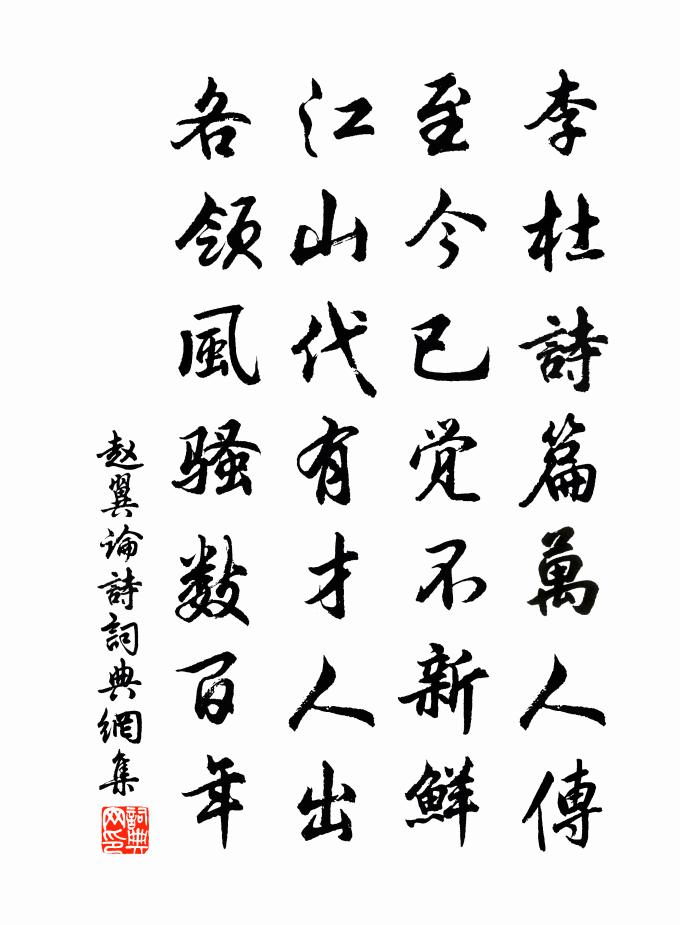 李杜詩篇萬人傳
至今已觉不新鮮
江山代有才人出
各领風骚数百年
赵翼论詩詞典網集
詞典
网印